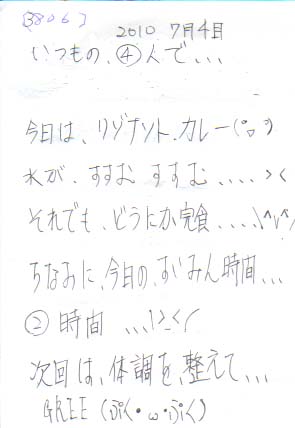 [3806]
2010 7月4日
いつもの、④人で、、、
今日は、リゾナント、カレー(°□°)
水が、すすむ すすむ、、、、><
それでも、どうにか完食、、、、\^v^/
ちなみに、今日の、すいみん時間、、、
② 時間 、、、!>_</
次回は、体調を、整えて、、、
GREE (ぷく・ω・ぷく)